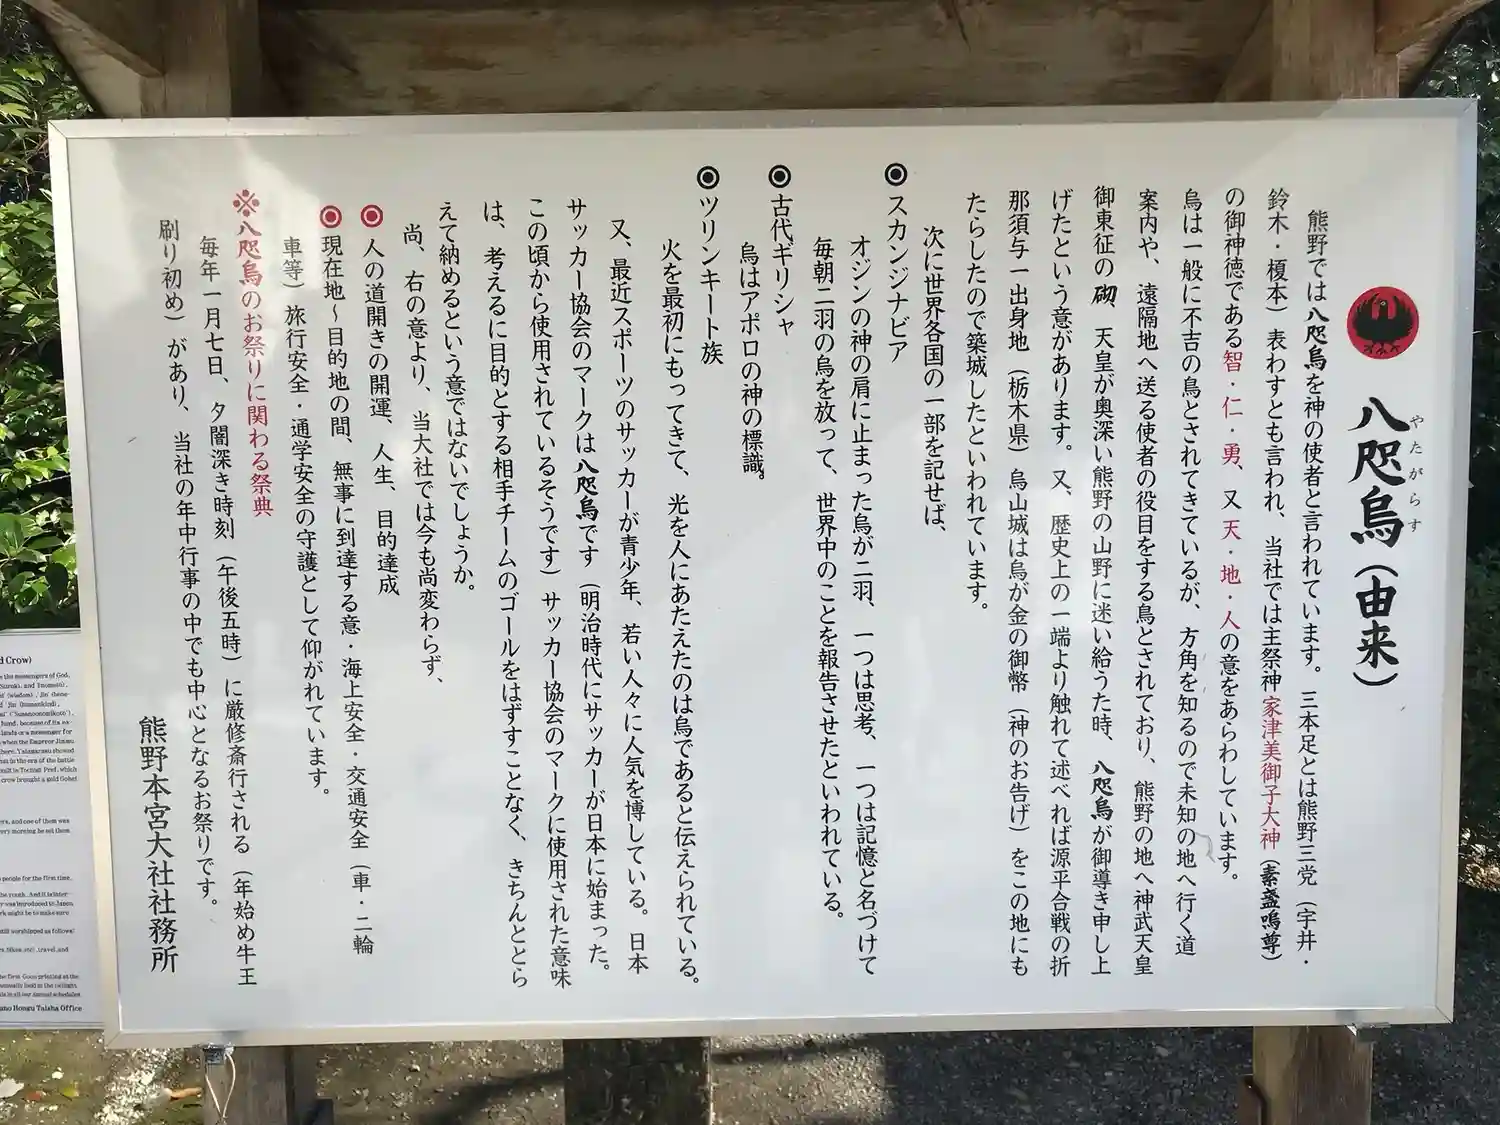 八咫烏（由来）
やたがらす
熊野では八咫烏を神の使者と言われています。三本足とは熊野三党（宇井・
鈴木・榎本）表わすとも言われ、当社では主祭神家津美御子大神（素盞嗚尊）
の御神徳である智・仁・勇、又天・地・人の意をあらわしています。
烏は一般に不吉の鳥とされてきているが、方角を知るので未知の地へ行く道
案内や、遠隔地へ送る使者の役目をする鳥とされており、熊野の地へ神武天皇
御東征の砌、天皇が奥深い熊野の山野に迷い給うた時、八咫烏が御導き申し上
げたという意があります。又、歴史上の一端より触れて述べれば源平合戦の折
那須与一出身地（栃木県）烏山城は烏が金の御幣（神のお告げ）をこの地にも
たらしたので築城したといわれています。
次に世界各国の一部を記せば、
◉スカンジナビア
オジンの神の肩に止まった烏が二羽、一つは思考、一つは記憶と名づけて
毎朝二羽の烏を放って、世界中のことを報告させたといわれている。
◉古代ギリシャ
烏はアポロの神の標識。
◉ツリンキート族
火を最初にもってきて、光を人にあたえたのは烏であると伝えられている。
又、最近スポーツのサッカーが青少年、若い人々に人気を博している。日本
サッカー協会のマークは八咫烏です（明治時代にサッカーが日本に始まった。
この頃から使用されているそうです）サッカー協会のマークに使用された意味
は、考えるに目的とする相手チームのゴールをはずすことなく、きちんととら
えて納めるという意ではないでしょうか。
尚、右の意より、当大社では今も尚変わらず、
◉人の道開きの開運、人生、目的達成
◉現在地～目的地の間、無事に到達する意・海上安全・交通安全（車・二輪
車等）旅行安全・通学安全の守護として仰がれています。
※八咫烏のお祭りに関わる祭典
毎年一月七日、夕闇深き時刻（午後五時）に厳修斎行される（年始め牛王
刷り初め）があり、当社の年中行事の中でも中心となるお祭りです。
熊野本宮大社社務所
d Crow)
e the messengers of God,
(wisdom), Jin
hand, because of its
lands or a messenger for
when the Emperor Jinmu
here, Yatagarasu showed
in the era of the battle
built in Tochigi Pref. which
crow brought a gold Gohei
ers, and one of them was
very morning he set them
people for the first time.
the youth. And it is
was introduced to Japan.
rk might be to make sure
still worshipped as follows:
rs, bikes, etc), travel, and
the first Goou printing at the
annually held in the twilight.
is in all our annual schedules
ano Hongu Taisha Office